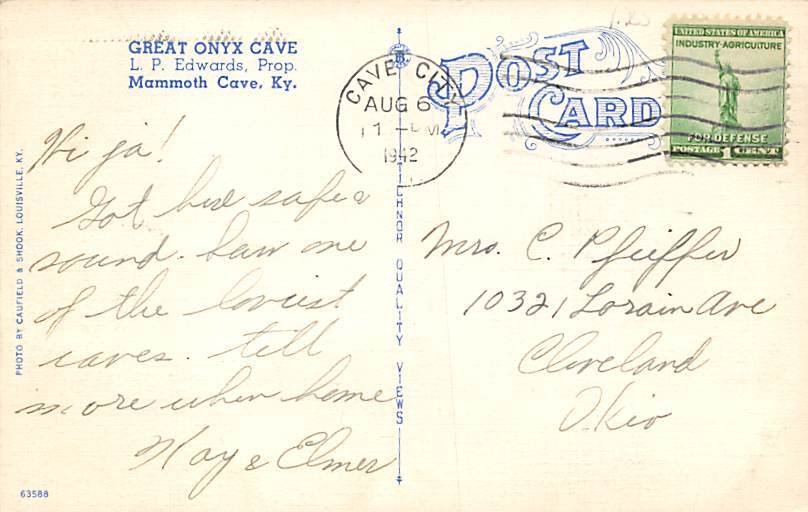 GREAT ONYX CAVE
L. P. Edwards, Prop.
Mammoth Cave, Ky.
Hi ja!
Got here safe &
sound. Saw one
of the lovliest
caves. tell
more when home
Kay & Elmer
PHOTO BY CAUFIELD & SHOOK, LOUISVILLE, KY.
63588
TICHNOR QUALITY VIEWS
POST
CARD
CAVE CITY
AUG 6
1 - PM
1942
UNITED STATES OF AMERICA
INDUSTRY·AGRICULTURE
FOR DEFENSE
POSTAGE 1 CENT
Mrs. C. Pfeiffer
10321 Lorain Ave
Cleveland
Ohio